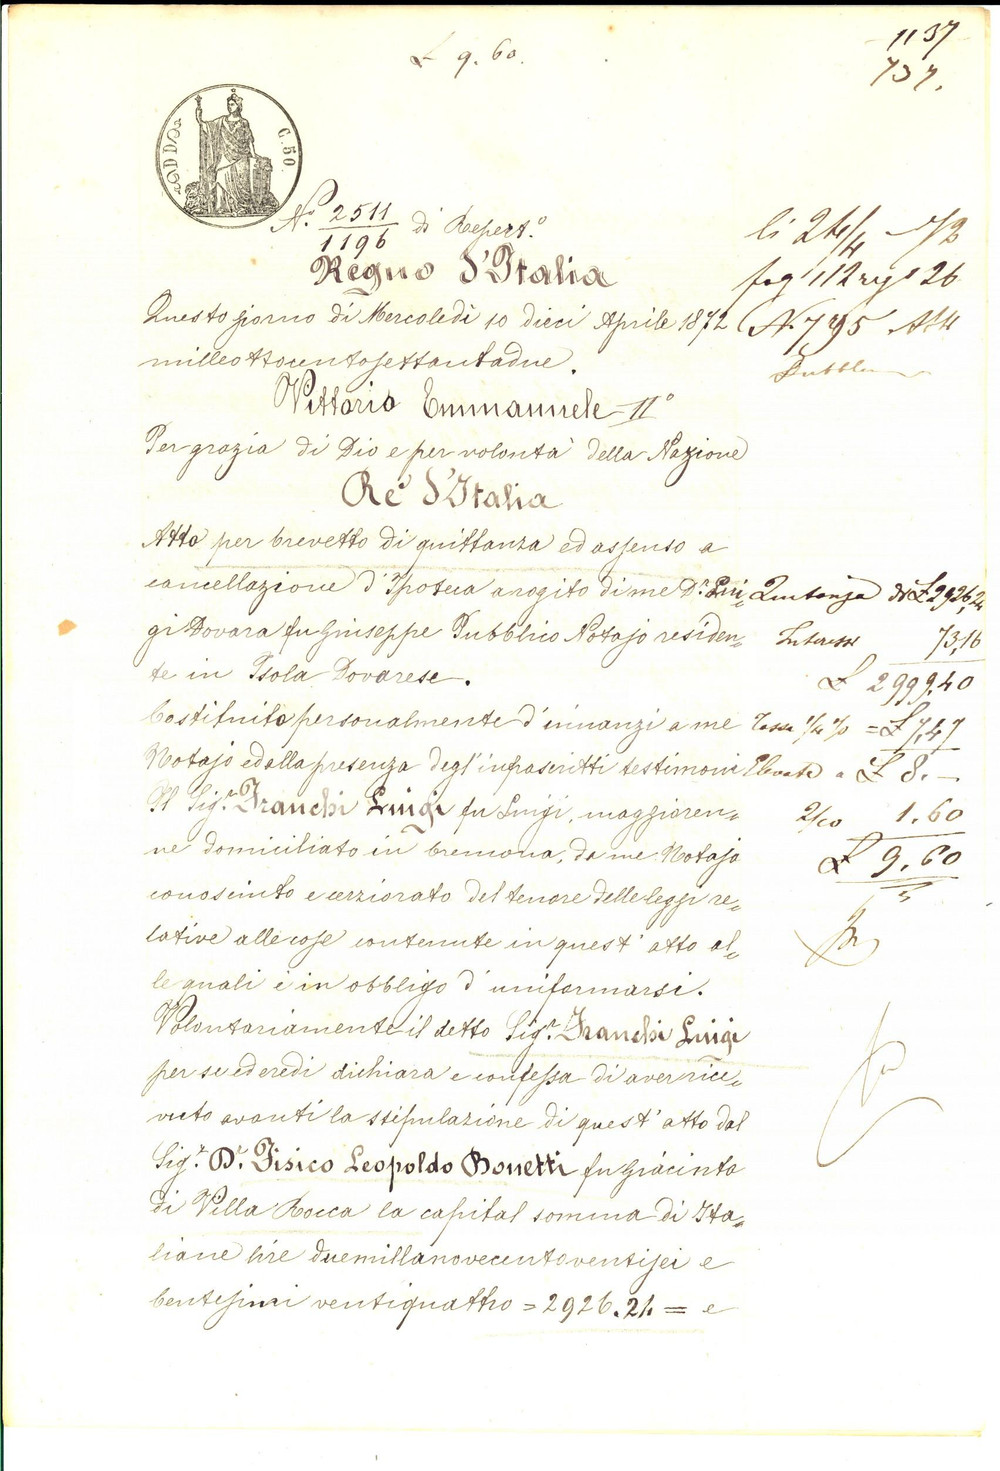 £ 9.60.
1137
737.
C. 50
N.° 2511/1196 di Repert.°
li 24/4 72
fog° 112
26
N. 795 Atti
Pubbl
Regno d'Italia
Questo giorno di Mercoledì 10 dieci Aprile 1872
milleottocentosettantadue.
Vittorio Emmanuele II°
Per grazia di Dio e per volontà della Nazione
Re d'Italia
Atto per brevetto di quittanza ed assenso a
cancellazione d'Ipoteca arogito di me D.r Lui=
gi Dovara fu Giuseppe Pubblico Notajo residen=
te in Isola Dovarese.
Costituito personalmente d'innanzi a me
Notajo ed alla presenza degl'infrascritti testimoni
Il Sig.r Franchi Luigi fu Luigi, maggioren=
ne domiciliato in Cremona, da me Notajo
conosciuto e cerziorato del tenore delle leggi re=
lative alle cose contenute in quest'atto al=
le quali è in obbligo d'uniformarsi.
Volontariamente il detto Sig.r Franchi Luigi
per se ed eredi dichiara e confessa di aver rice=
vuto avanti la stipulazione di quest'atto dal
Sig.r D.r Fisico Leopoldo Bonetti fu Giacinto
di Villa Rocca la capital somma di Ita=
liane lire duemillanovecentoventisei e
Centesimi ventiquattro = 2926.24 = e
Quitanza di £ 2926,24
Interesse 73,16
£ 2999.40
Tassa 1/4 % = £ 7,47
Elevata a £ 8.—
2/10 1.60
£ 9.60